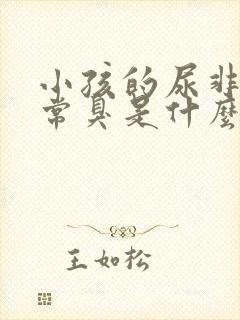 小孩的尿非
常臭是什麼
王如松